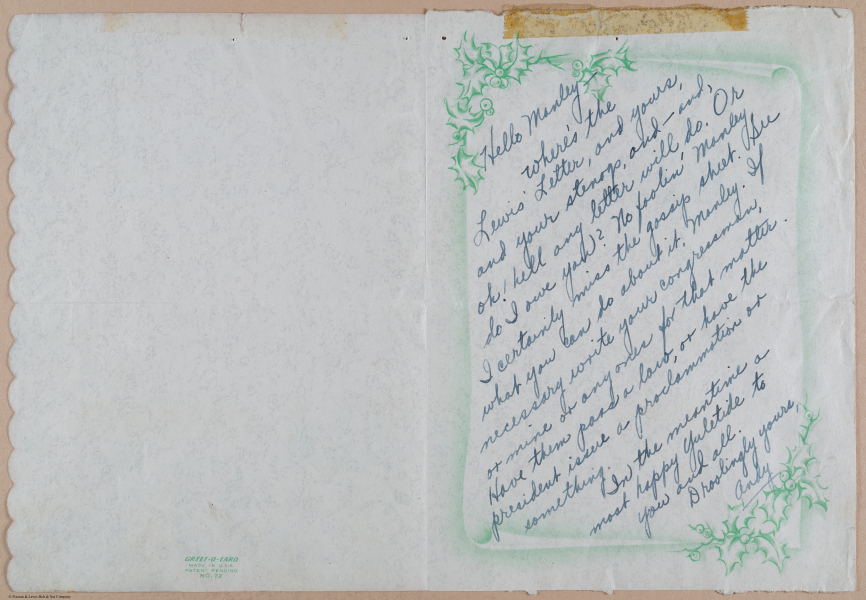 Hello Manley—
Where's the
Lewis' Letter, and yours,
and your stenogs, and— and,
oh, hell any letter will do. Or
do I owe you? No foolin' Manley
I certainly miss the gossip sheet. See
what you can do about it, Manley. If
necessary write your congressman,
or mine or anyones for that matter.
Have them pass a law, or have the
president issue a proclammation or
something.
In the meantime a
most happy Yuletide to
you and all.
Droolingly yours,
Andy
GREET-O-CARD
MADE IN U.S.A.
PATENT PENDING
NO. 72